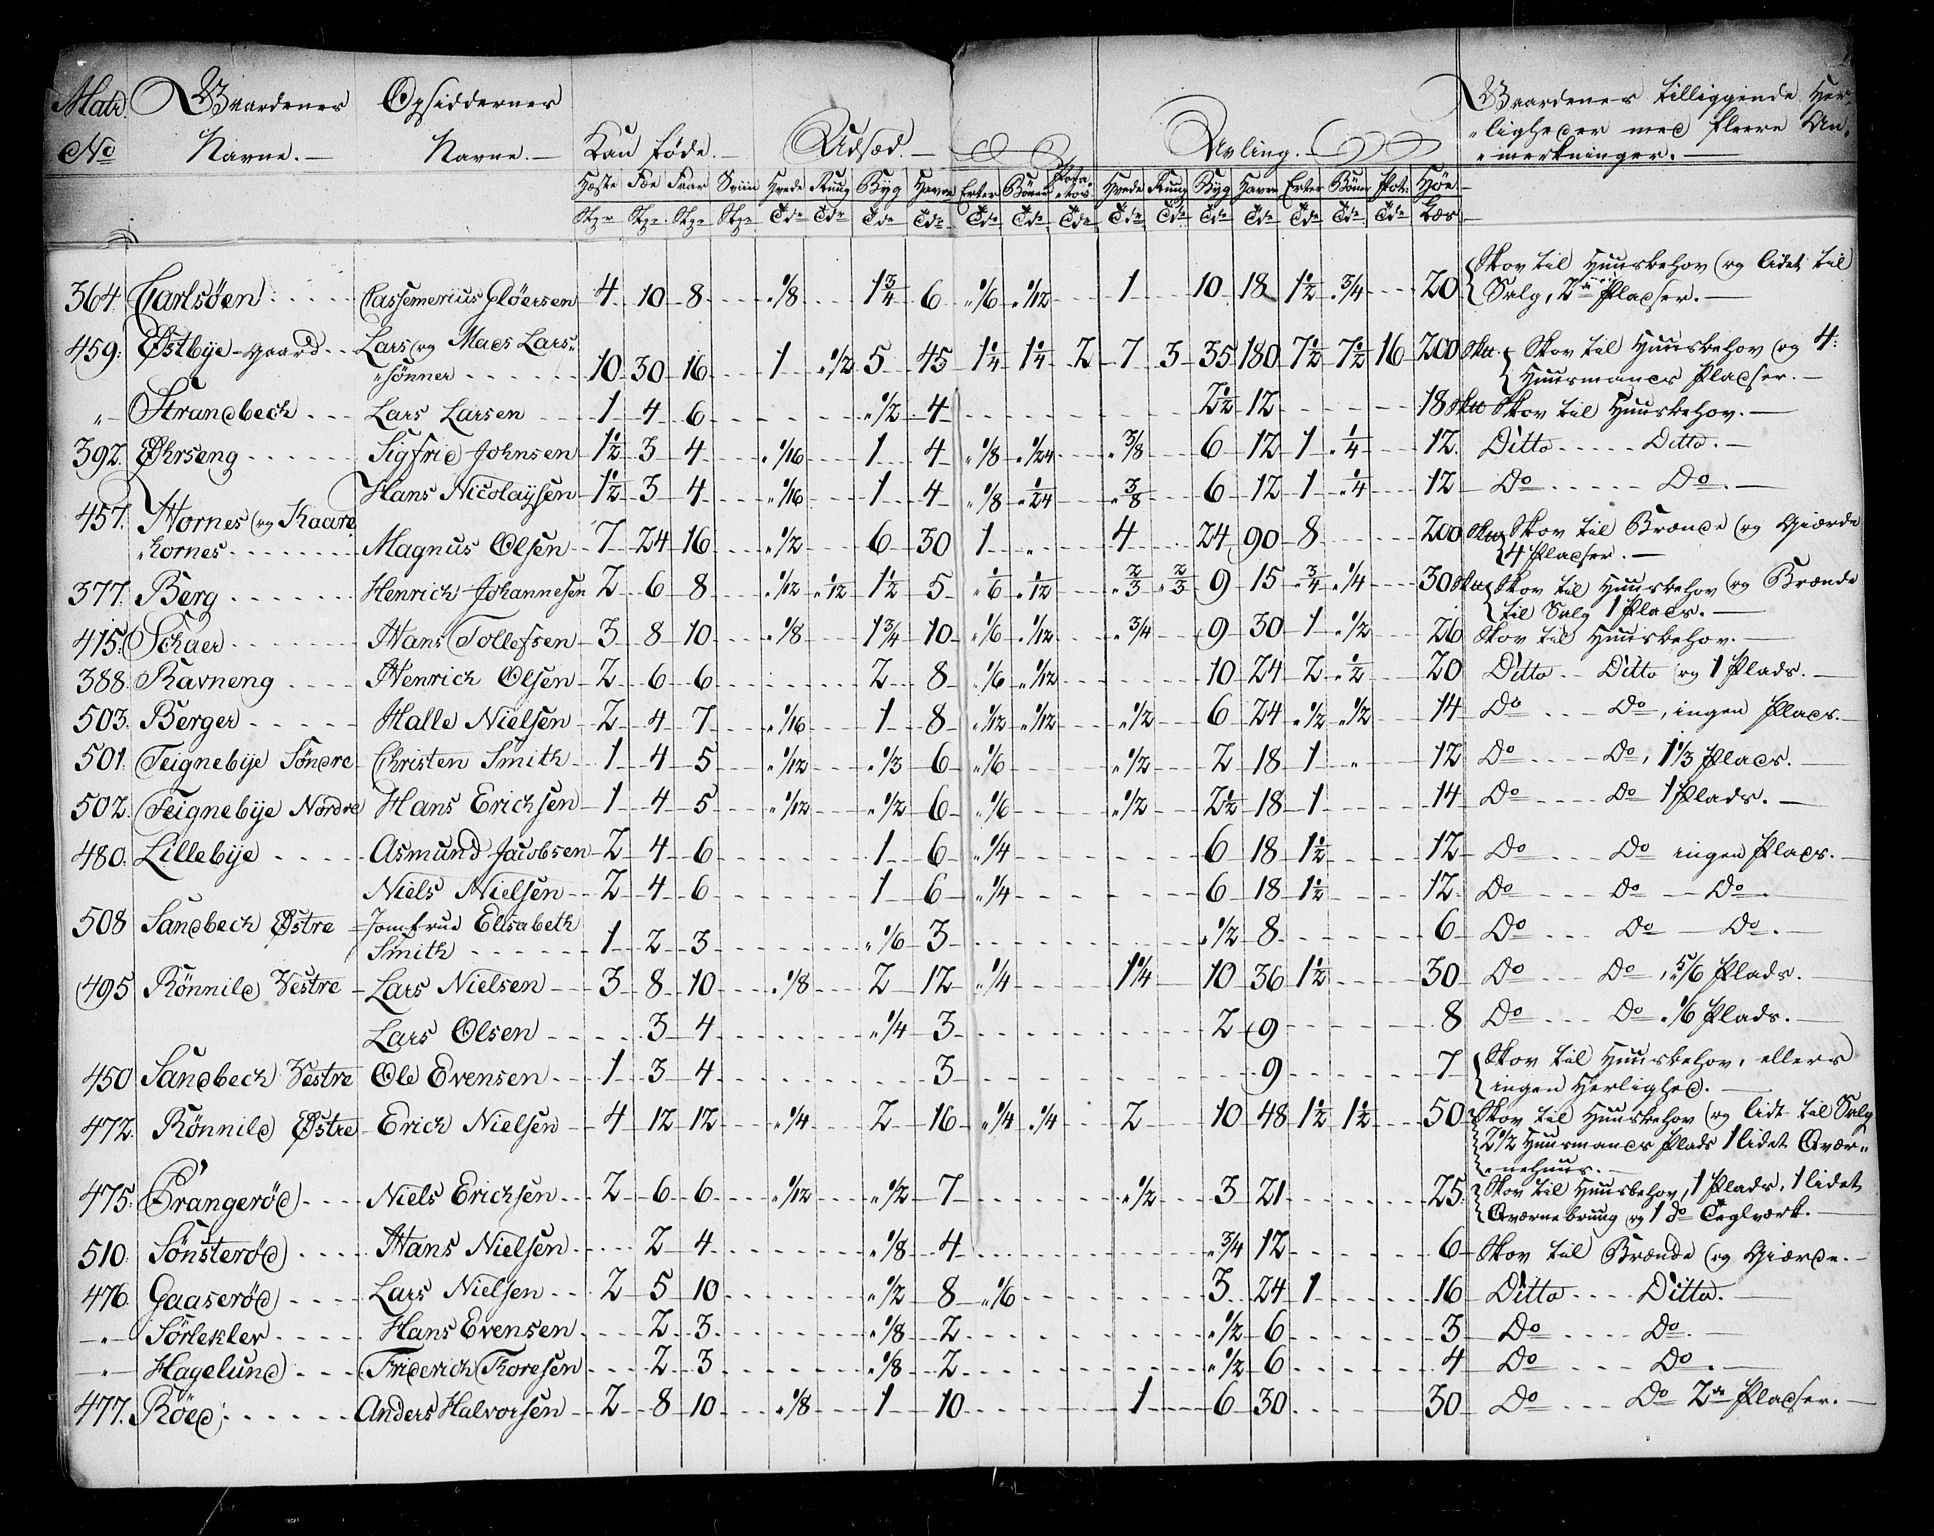 Matr. Gaardenes Opsiddernes Gaardenes tilliggende Her-
No Navne. Navne. Kan föde. Udsæd. Avling. ligheder med fleere An-
merkninger.
Heste Fæe Faar Sviin Hvede Rug Byg Havre Erter Bönner Potatos Hvede Rug Byg Havre Erter Bönner Pot: Höe
Stkr Stkr Stkr Stkr Tdr Tdr Tdr Tdr Tdr Tdr Tdr Tdr Tdr Tdr Tdr Tdr Tdr Tdr Læs
364. Carlsöen Cassemerius Glöersen 4 10 8 1/8 1 3/4 6 1/6 1/12 1 10 18 1 1/2 3/4 20 Skov til Huusbehov og lidet til
Salg, 2de Pladser.
459. Østbye-gaard Lars og Mads Lars- 10 30 16 1 1/2 5 45 1 1/4 1 1/4 2 7 3 35 180 7 1/2 7 1/2 16 200 Skov til Huusbehov og 4
sönner Huusmands Pladser.
" Strandbech Lars Larsen 1 4 6 1/2 4 2 1/2 12 18 Skov til Huusbehov.
392. Øhrseng Sigfrid Johnsen 1 1/2 3 4 1/16 1 4 1/8 1/24 3/8 6 12 1 1/4 12 Ditto Ditto.
Hans Nicolaysen 1 1/2 3 4 1/16 1 4 1/8 1/24 3/8 6 12 1 1/4 12 Do Do.
457. Hornes og Kaare
kornes Magnus Olsen 7 24 16 1/2 6 30 1 " 4 24 90 8 200 Skov til Brænde og Giærde
4 Pladser.
377. Berg Henrich Johannesen 2 6 8 1/12 1/12 1 1/2 5 1/6 1/12 2/3 2/3 9 15 3/4 1/4 30 Skov til Huusbehov og Brænde
til Salg 1 Plads.
415. Schaer Hans Tollefsen 3 8 10 1/8 1 3/4 10 1/6 1/12 3/4 9 30 1 1/2 26 Skov til Huusbehov.
388. Ravneng Henrich Olsen 2 6 6 2 8 1/6 1/12 10 24 2 1/2 20 Ditto Ditto og 1 Plads.
503. Berger Halle Nielsen 2 4 7 1/16 1 8 1/12 1/12 1/2 6 24 1/2 1/2 14 Do Do, ingen Plads.
501. Teignebye Söndre Christen Smith 1 4 5 1/12 1/3 6 1/6 1/2 2 18 1 " 12 Do Do, 1 1/3 Plads.
502. Teignebye Nordre Hans Erichsen 1 4 5 1/12 1/2 6 1/6 1/2 2 1/2 18 1 14 Do Do 1 Plads.
480. Lillebye Asmund Jacobsen 2 4 6 1 6 1/4 6 18 1 1/2 12 Do Do ingen Plads.
Niels Nielsen 2 4 6 1 6 1/4 6 18 1 1/2 12 Do Do Do.
508 Sandbech Østre Jomfrue Elisabeth
Smith 1 2 3 1/6 3 1/2 8 6 Do Do Do.
495 Rönnild Vestre Lars Nielsen 3 8 10 1/8 2 12 1/4 1 1/4 10 36 1 1/2 30 Do Do, 5/6 Plads.
Lars Olsen 3 4 1/4 3 2 9 8 Do Do 1/6 Plads.
450 Sandbech Vestre Ole Evensen 1 3 4 3 9 7 Skov til Huusbehov, ellers
ingen Herlighed.
472. Rönnild Østre Erich Nielsen 4 12 12 1/4 2 16 1/4 1/4 2 10 48 1 1/2 1 1/2 50 Skov til Huusbehov og lidt til Salg
2 1/2 Huusmands Plads 1 lidet Qvær-
nehuus.
475. Prangeröd Niels Erichsen 2 6 6 1/12 1/2 7 1/2 3 21 25 Skov til Huusbehov, 1 Plads, 1 lidet
Qværnebruug og 1 do Teglværk.
510. Sönsteröd Hans Nielsen 2 4 1/8 4 3/4 12 6 Skov til Brænde og Giærde.
476. Gaaseröd Lars Nielsen 2 5 10 1/2 8 1/6 3 24 1 16 Ditto Ditto.
" Sörlekler Hans Evensen 2 3 1/8 2 1/2 6 3 Do Do.
" Hagelund Friderich Thoresen 2 3 1/8 2 1/2 6 4 Do Do.
477. Röed Anders Halvorsen 2 8 10 1/8 1 10 1 6 30 30 Do Do 2de Pladser.